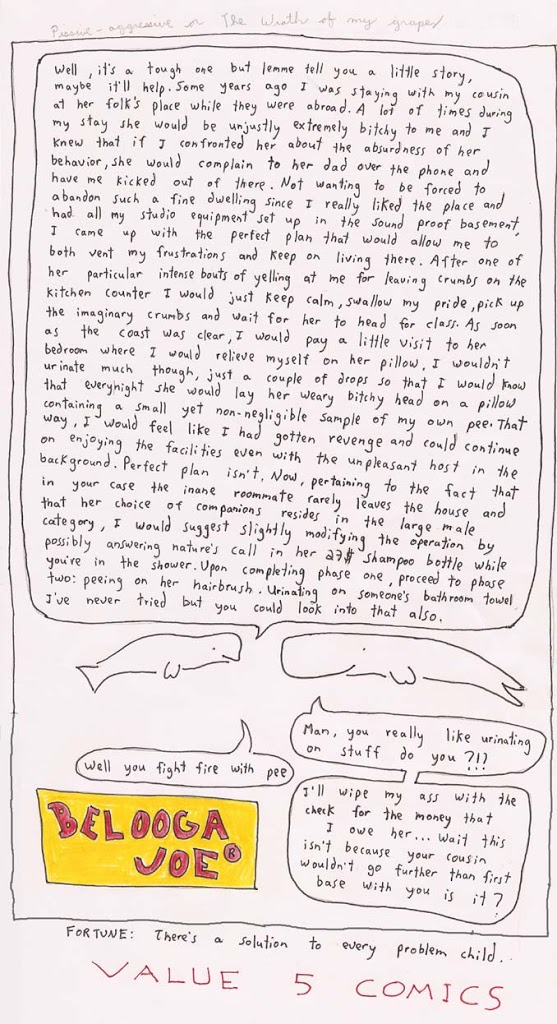 Pissive-aggressive or The Wrath of my grapes
Well, it's a tough one but lemme tell you a little story,
maybe it'll help. Some years ago I was staying with my cousin
at her folk's place while they were abroad. A lot of times during
my stay she would be unjustly extremely bitchy to me and I
knew that if I confronted her about the absurdness of her
behavior, she would complain to her dad over the phone and
have me kicked out of there. Not wanting to be forced to
abandon such a fine dwelling since I really liked the place and
had all my studio equipment set up in the sound proof basement,
I came up with the perfect plan that would allow me to
both vent my frustrations and keep on living there. After one of
her particular intense bouts of yelling at me for leaving crumbs on the
kitchen counter I would just keep calm, swallow my pride, pick up
the imaginary crumbs and wait for her to head for class. As soon
as the coast was clear, I would pay a little visit to her
bedroom where I would relieve myself on her pillow. I wouldn't
urinate much though, just a couple of drops so that I would know
that everynight she would lay her weary bitchy head on a pillow
containing a small yet non-negligible sample of my own pee. That
way, I would feel like I had gotten revenge and could continue
on enjoying the facilities even with the unpleasant host in the
background. Perfect plan isn't. Now, pertaining to the fact that
in your case the inane roommate rarely leaves the house and
that her choice of companions resides in the large male
category, I would suggest slightly modifying the operation by
possibly answering nature's call in her 27$ shampoo bottle while
you're in the shower. Upon completing phase one, proceed to phase
two: peeing on her hairbrush. Urinating on someone's bathroom towel
I've never tried but you could look into that also.
Man, you really like urinating
on stuff do you?!?
Well you fight fire with pee
I'll wipe my ass with the
check for the money that
I owe her... Wait this
isn't because your cousin
wouldn't go further than first
base with you is it?
BELOOGA
JOE®
FORTUNE: There's a solution to every problem child..
VALUE 5 COMICS